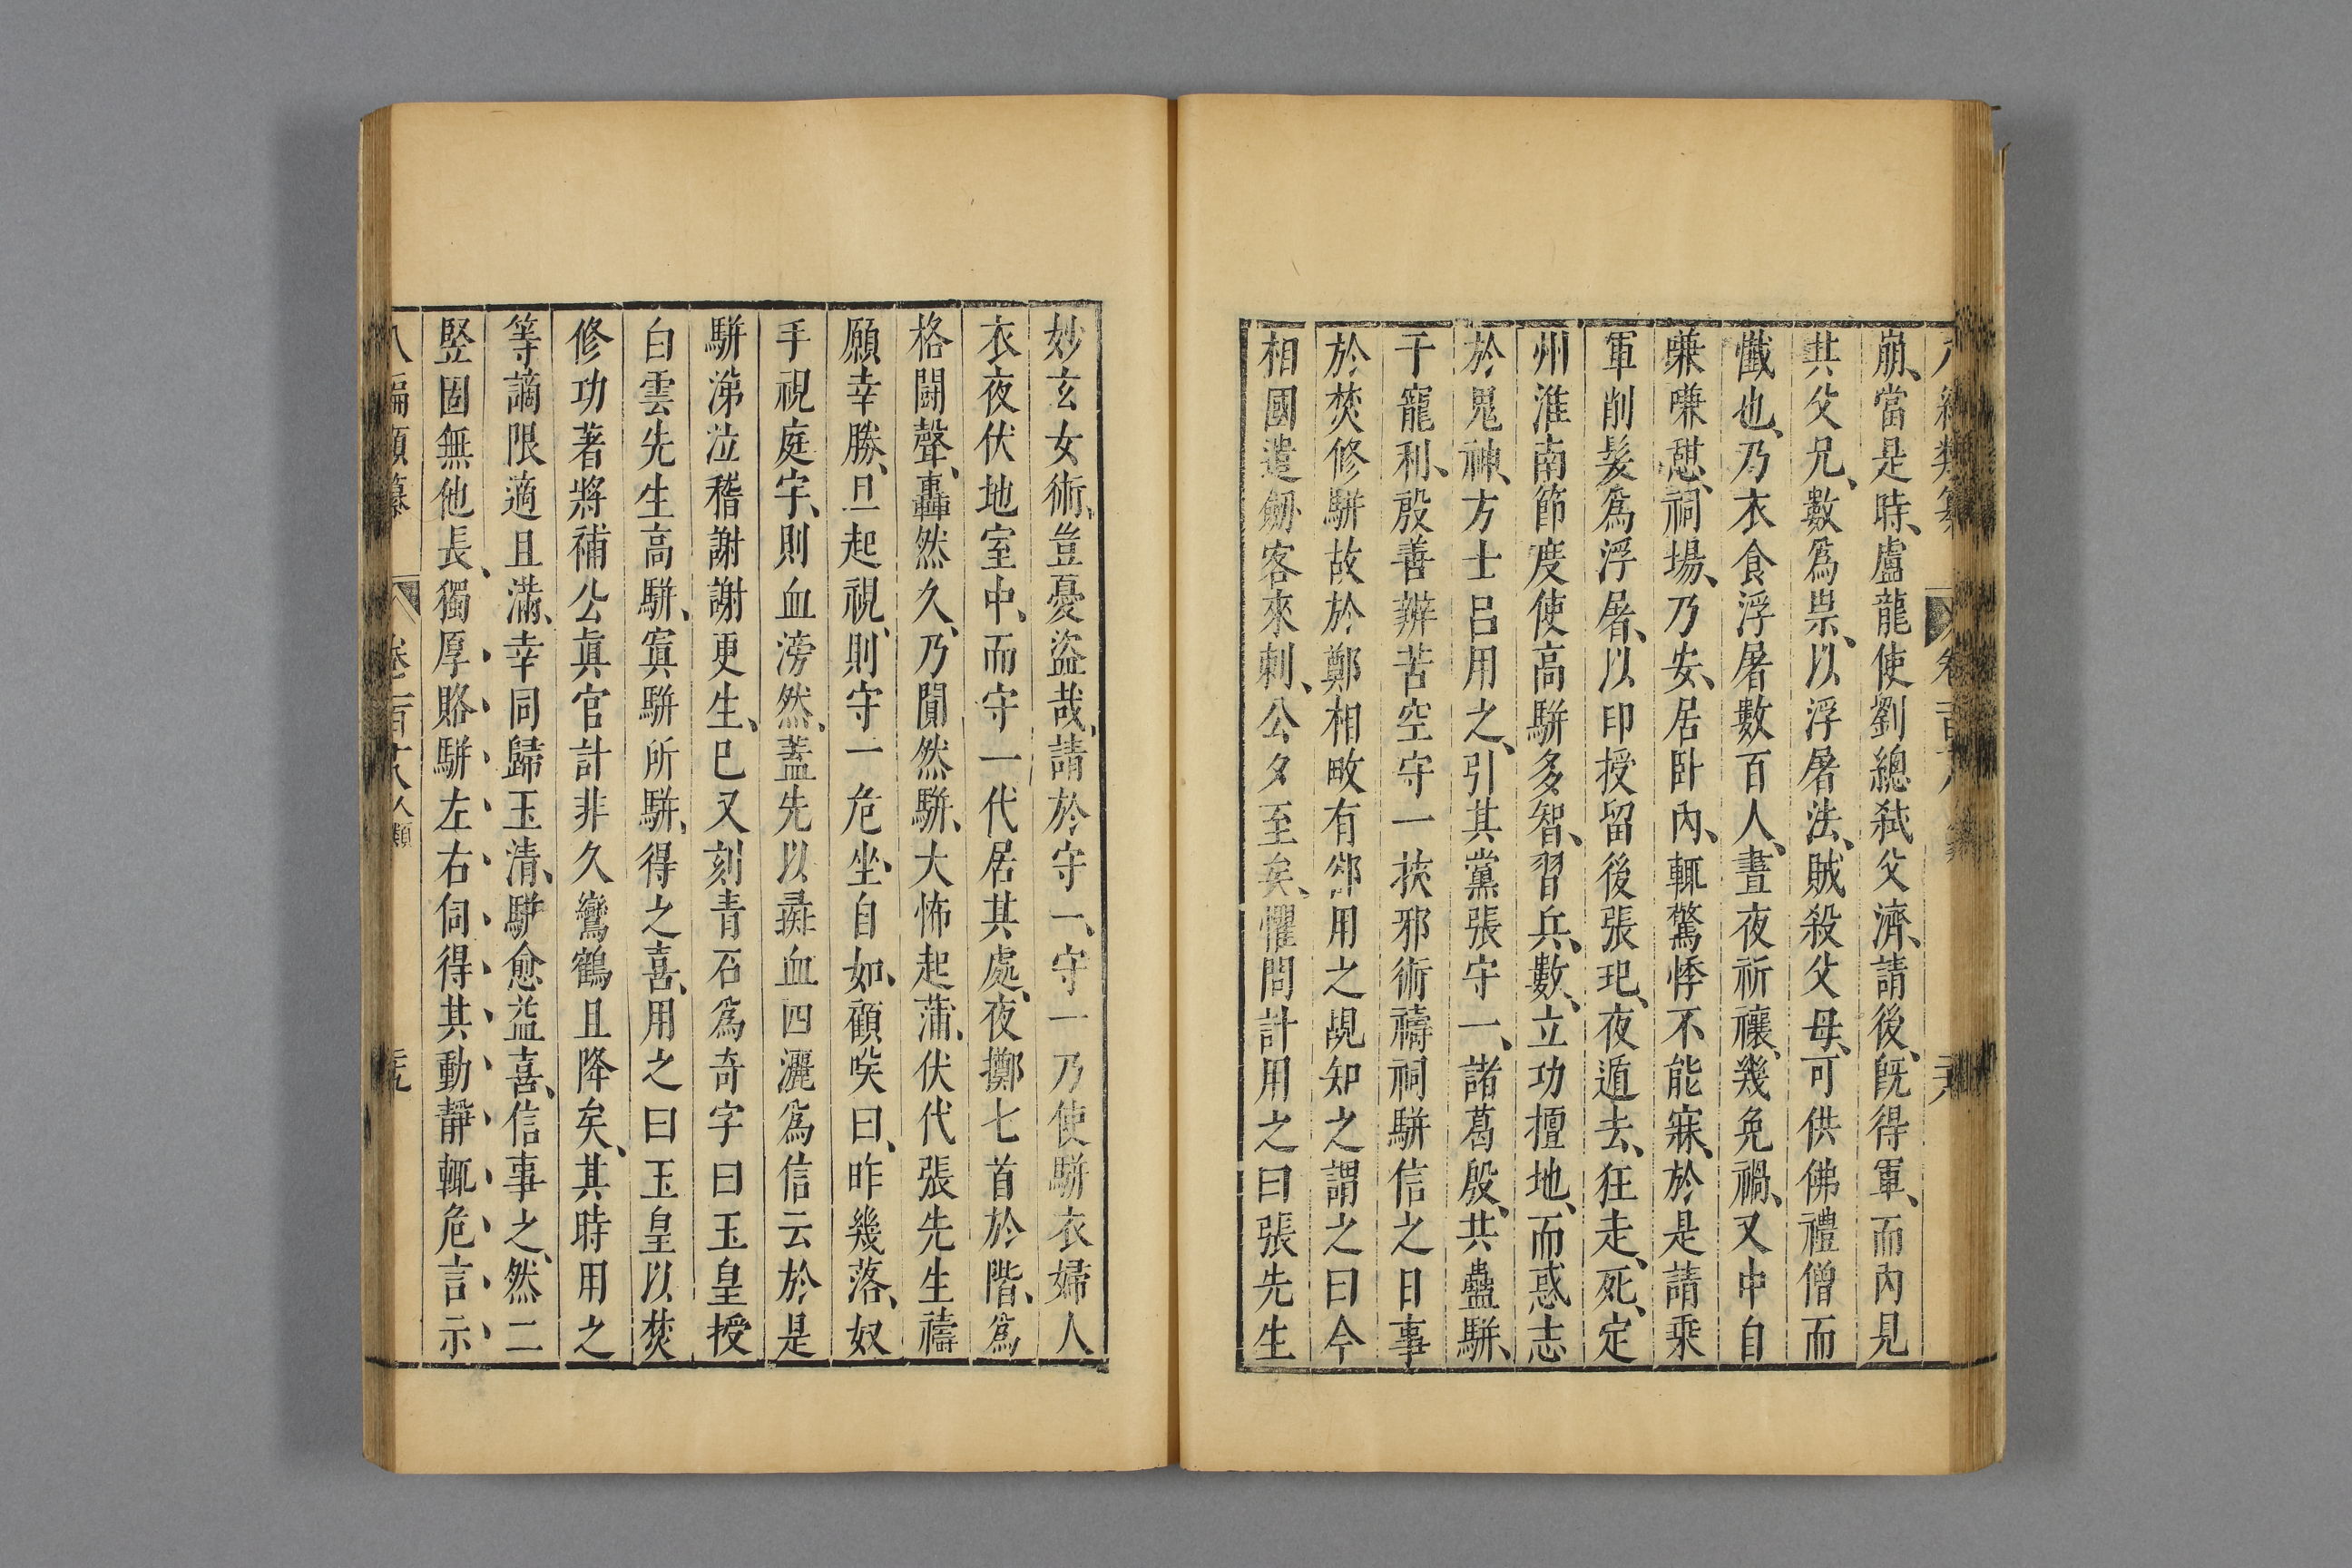 崩、當是時、盧龍使劉總弒父濟、請後、旣得軍、而內見
其父兄、數爲祟、以浮屠法、賊殺父母、可供佛禮僧而
懺也、乃衣食浮屠數百人、晝夜祈禳、幾免禍、又中自
歉嗛懟、祠場、乃安、居卧內、輒驚悸不能寐、於是請乘
軍削髮爲浮屠、以印授留後張玘、夜遁去、狂走、死、定
州淮南節度使高駢多智、習兵、數、立功擅地、而惑志
於鬼神、方士呂用之、引其黨張守一、諸葛殷、共蠱駢、
于寵利、殷善辨苦空守一挾邪術禱祠駢信之日事
於焚修駢故於鄭相畋有郤用之覘知之謂之曰今
相國遣劒客來刺、公夕至矣、懼問計用之曰張先生
妙玄女術、豈憂盜哉、請於守一、守一乃使駢衣婦人
衣夜伏地室中、而守一代居其處、夜擲七首於階、爲
格鬪聲、轟然久、乃闃然駢、大怖起蒲、伏代張先生禱
願幸勝、旦起視、則守一危坐、自如、顧唉曰、昨幾落、奴
手視庭宇、則血滂然、蓋先以彘血四灑爲信云於是
駢涕泣稽謝謝更生、已又刻青石爲奇字曰玉皇授
白雲先生高駢、寘駢所駢、得之喜、用之曰玉皇以焚
修功著將補公眞官計非久鸞鶴且降矣、其時用之
等謫限適且滿、幸同歸玉清、駢愈益喜、信事之、然二
竪固無他長、獨厚賂駢左右伺得其動靜輒危言示
八編類纂 卷二百十八 人類